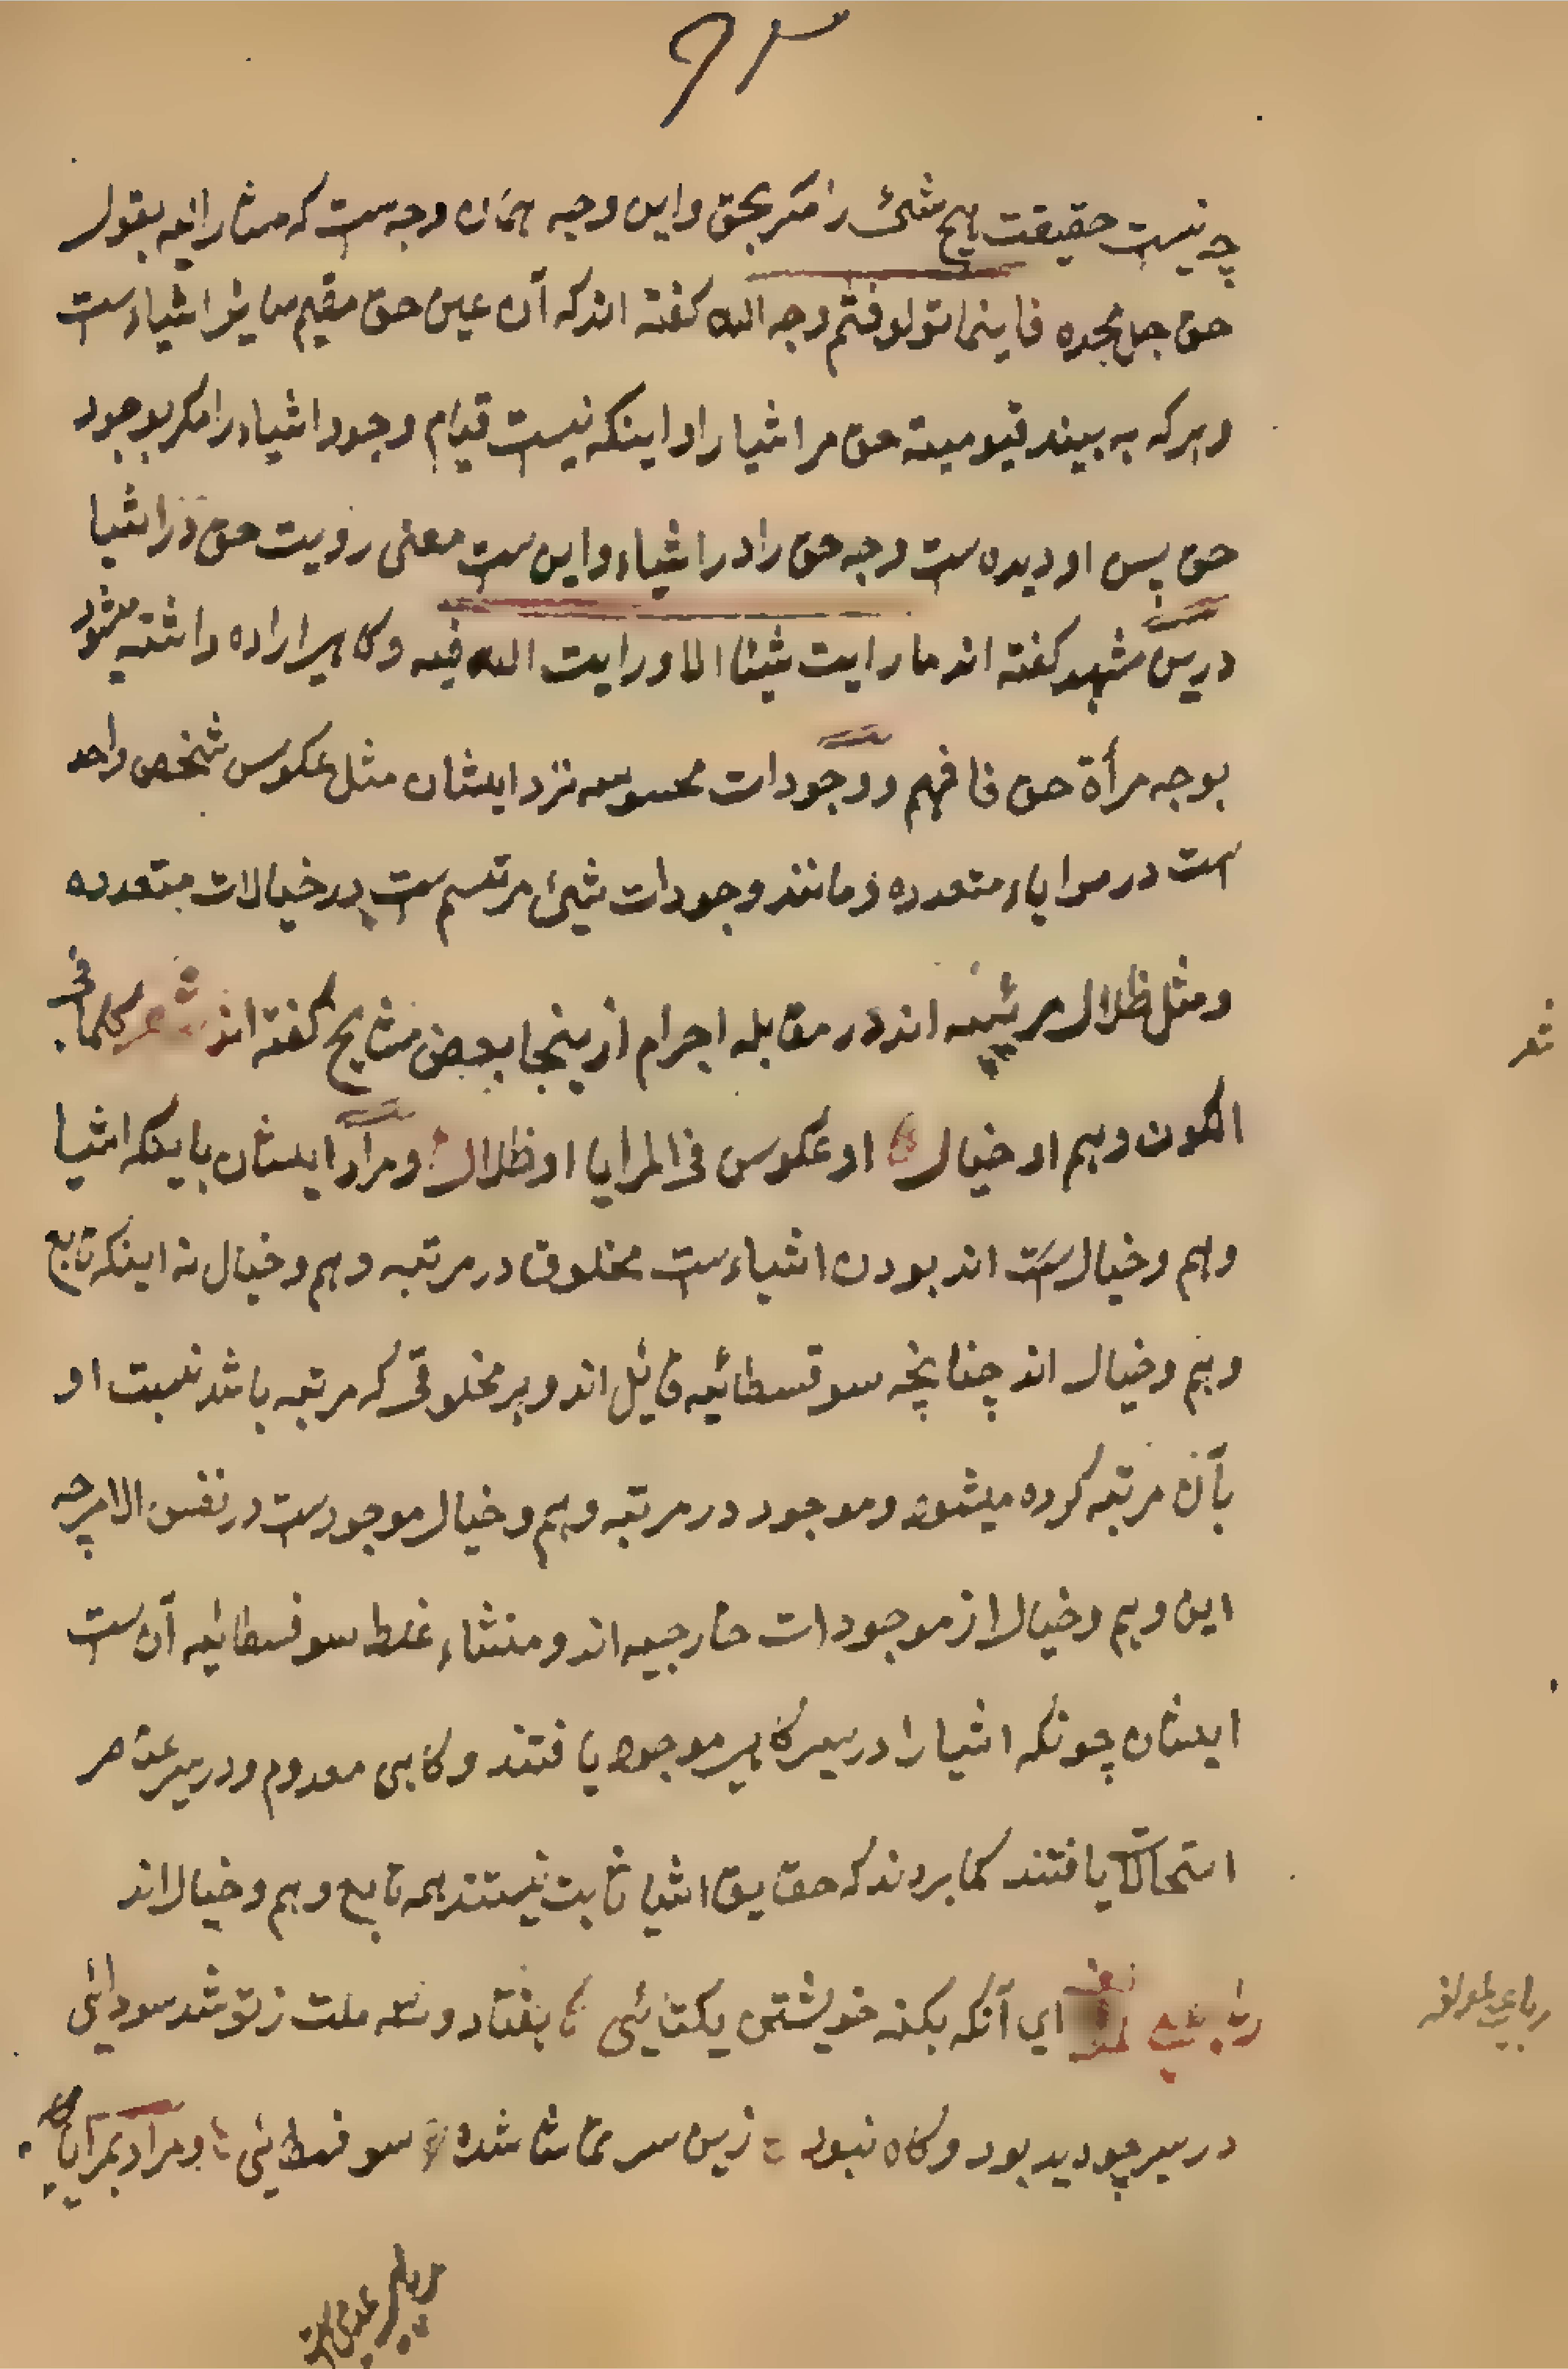 ۹۳
چه نیست حقیقت هیچ شئ را مگر بحق و این وجه همان وجه ست که مشار الیه بقول
حق جل مجده فاینما تولوا فثم وجه الله گفته اند که آن عین حق مقیم سایر اشیاء ست
و هرکه به بیند قیومیته حق مر اشیا را و اینکه نیست قیام وجود اشیاء را مگر بوجود
حق پس او دیده ست وجه حق را در اشیاء و این ست معنی رویت حق در اشیا
درین مشهد گفته اند ما رایت شیئا الا و رایت الله فیه و گاهی اراده داشته میشود
بوجه مرأة حق فافهم و وجودات محسوسه نزد ایشان مثل عکوس شخص واحد
ست در مرایاء متعدده و مانند وجودات شیئ مرتسم ست در خیالات متعدده
و مثل ظلال مرئیه اند در مقابله اجرام ازینجا بعض مشایخ گفته اند شعر کلما فی
الکون وهم او خیال او عکوس فی المرایا او ظلال و مراد ایشان باینکه اشیا
وهم و خیال ست اند بودن اشیاء ست مخلوق در مرتبه وهم و خیال نه اینکه تابع
وهم و خیال اند چنانچه سوفسطائیه قایل اند و هر مخلوقی که مرتبه باشد نسبت او
بآن مرتبه کرده میشود و موجود در مرتبه وهم و خیال موجود ست در نفس الامر چه
این وهم و خیال از موجودات خارجیه اند و منشاء غلط سوفسطایه آن ست
ایشان چونکه اشیا را در سیر گاهی موجود یافتند و گاهی معدوم و در سیر عناصر
استحالات یافتند گمان بردند که حقایق اشیا ثابت نیستند همه تابع وهم و خیال اند
رباعی ای آنکه بکنه خویشتن یکتائی هفتاد و سه ملت ز تو شد سودائی
در سیر چو دید بود و گاه نبود زین سر تماشا شده سوفسطائی و مراد بمرایا
شعر
رباعی لمولفه